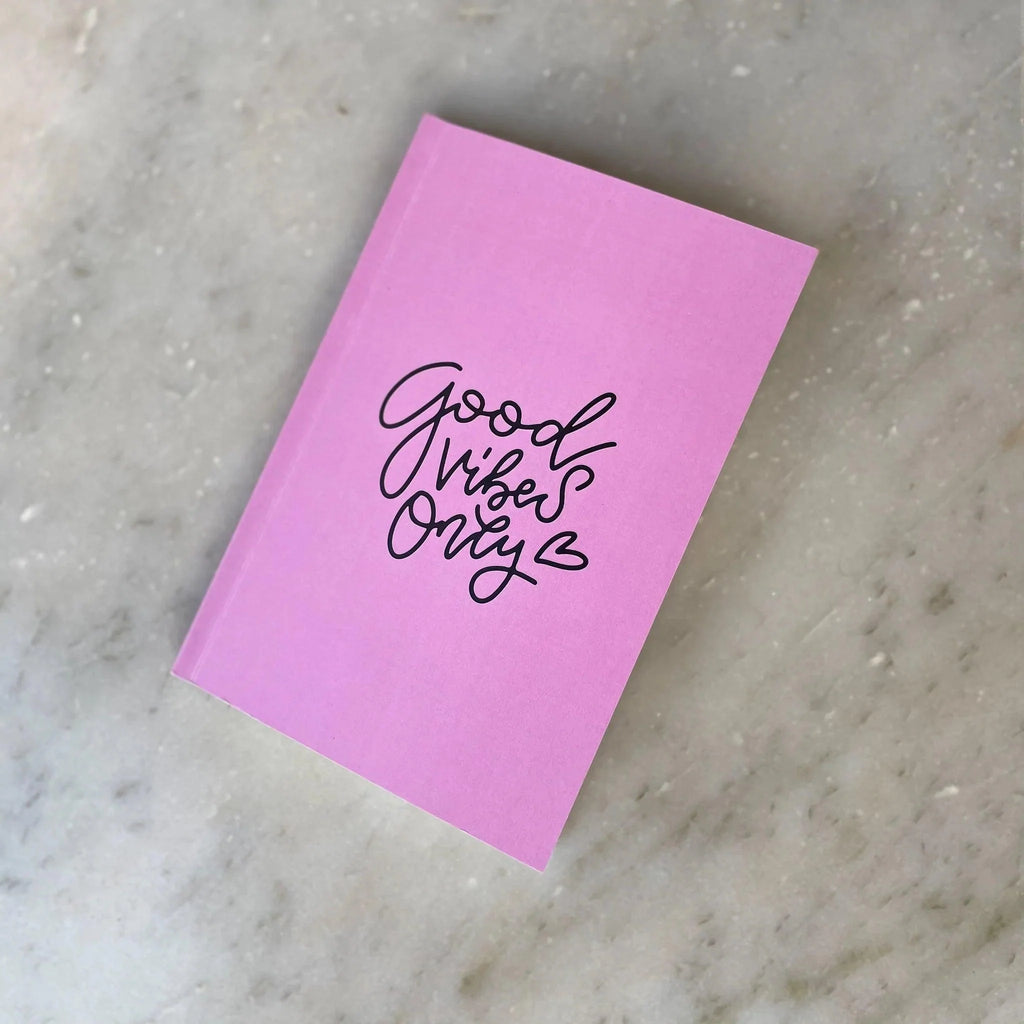 Good
vibes
Only